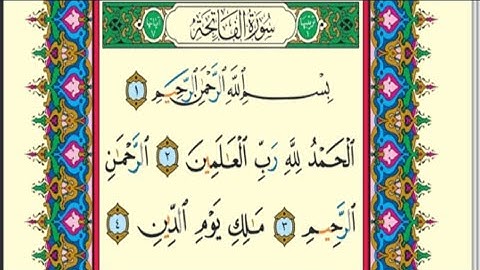 سُورَةُ الْفَاتِحَةِ
بِسْمِ ٱللَّهِ ٱلرَّحْمَٰنِ ٱلرَّحِيمِ ١
ٱلْحَمْدُ لِلَّهِ رَبِّ ٱلْعَٰلَمِينَ ٢ ٱلرَّحْمَٰنِ
ٱلرَّحِيمِ ٣ مَٰلِكِ يَوْمِ ٱلدِّينِ ٤